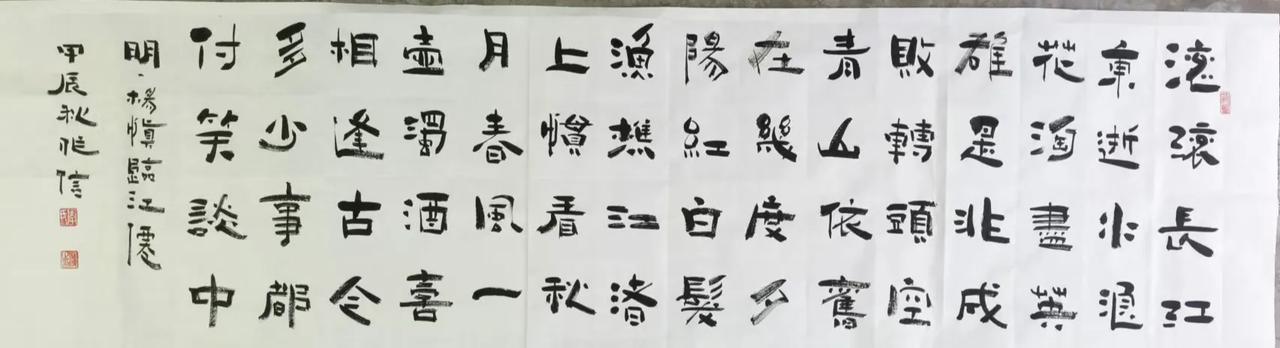 滾滾長江
東逝水浪
花淘盡英
雄是非成
敗轉頭空
青山依舊
在幾度夕
陽紅白髮
漁樵江渚
上慣看秋
月春風一
壺濁酒喜
相逢古今
多少事都
付笑談中
明·楊慎臨江僊
甲辰秋信